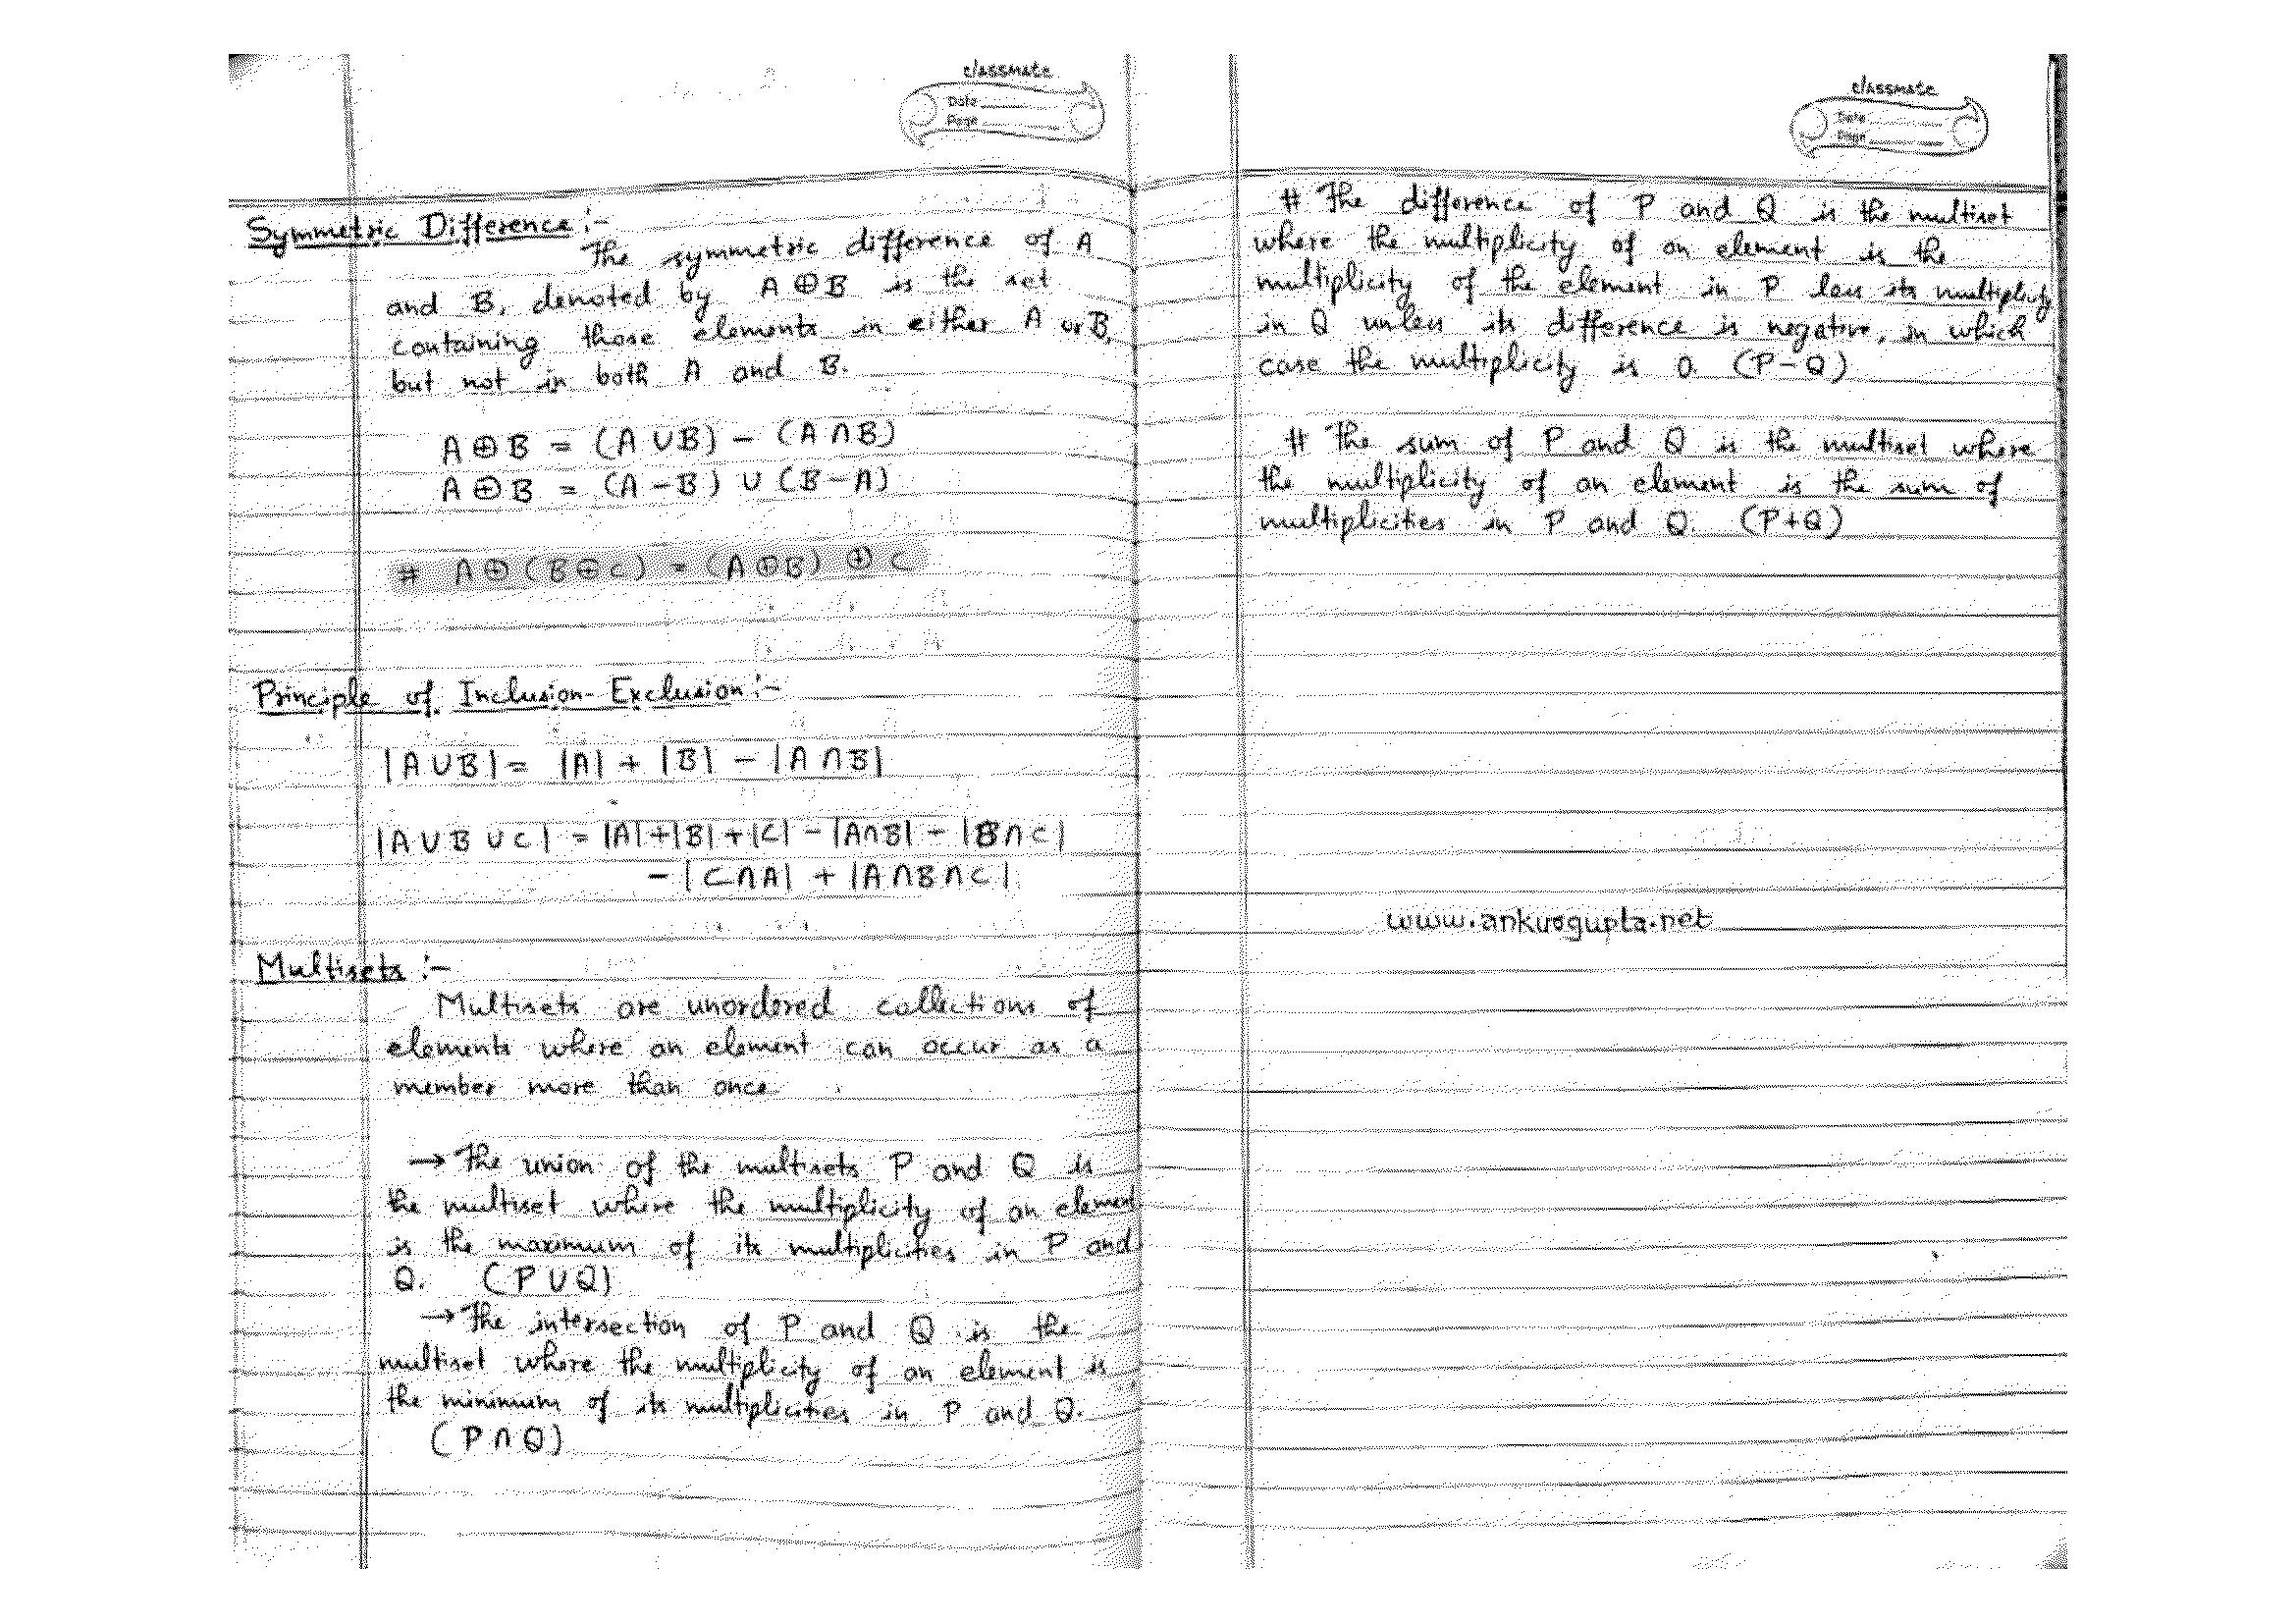 classmate
Date
Page
Symmetric Difference :-
The symmetric difference of A
and B, denoted by A ⊕ B is the set
containing those elements in either A or B,
but not in both A and B.
A ⊕ B = (A ∪ B) - (A ∩ B)
A ⊕ B = (A - B) ∪ (B - A)
# A ⊕ (B ⊕ C) = (A ⊕ B) ⊕ C
Principle of Inclusion-Exclusion :-
|A ∪ B| = |A| + |B| - |A ∩ B|
|A ∪ B ∪ C| = |A| + |B| + |C| - |A ∩ B| - |B ∩ C|
- |C ∩ A| + |A ∩ B ∩ C|
Multisets :-
Multisets are unordered collections of
elements where an element can occur as a
member more than once
→ The union of the multisets P and Q is
the multiset where the multiplicity of an element
is the maximum of its multiplicities in P and
Q. (P ∪ Q)
→ The intersection of P and Q is the
multiset where the multiplicity of an element is
the minimum of its multiplicities in P and Q.
(P ∩ Q)
classmate
Date
Page
# The difference of P and Q is the multiset
where the multiplicity of an element is the
multiplicity of the element in P less its multiplicity
in Q unless its difference is negative, in which
case the multiplicity is 0. (P - Q)
# The sum of P and Q is the multiset where
the multiplicity of an element is the sum of
multiplicities in P and Q. (P + Q)
www.ankurgupta.net